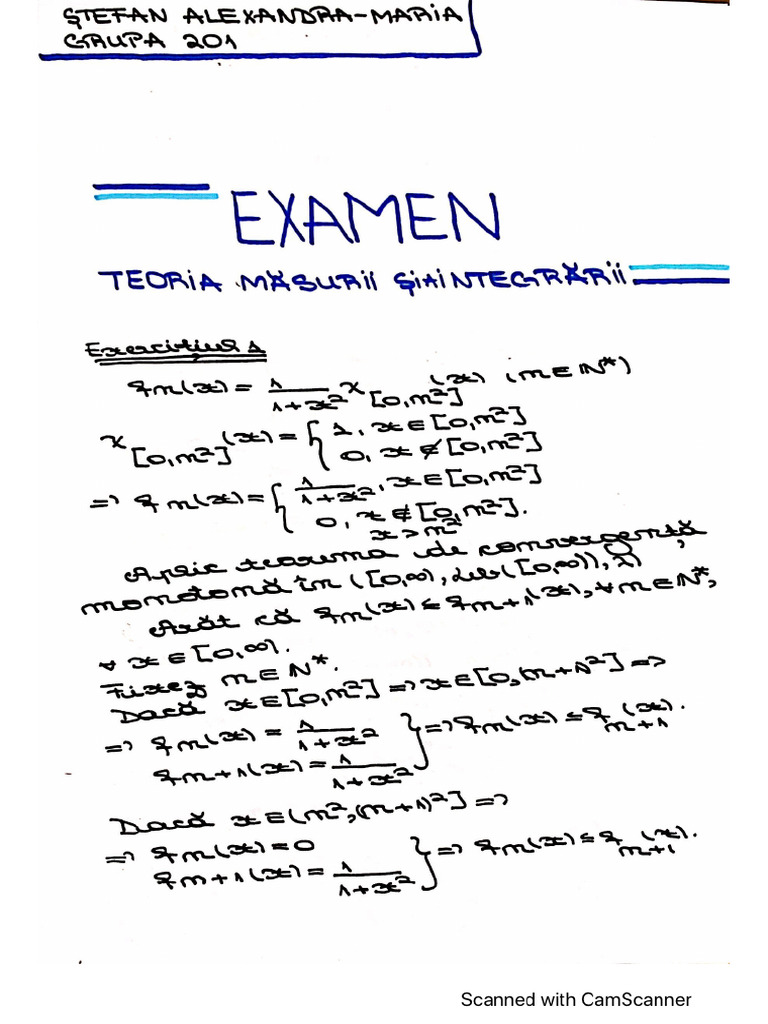 ȘTEFAN ALEXANDRA-MARIA
GRUPA 201
EXAMEN
TEORIA MĂSURII ȘI A INTEGRĂRII
Exercițiul 1
fn(x) = 1/(1+x²) χ[0,n²](x) (n∈N*)
χ[0,n²](x) = { 1, x∈[0,n²]
0, x∉[0,n²]
=> fn(x) = { 1/(1+x²), x∈[0,n²]
0, x∉[0,n²].
x>n²
Aplic teorema de convergență
monotonă în ([0,∞), Leb([0,∞)), λ)
Arăt că fn(x) ≤ fn+1(x), ∀n∈N*,
∀ x∈[0,∞).
Fixez n∈N*.
Dacă x∈[0,n²] => x∈[0,(n+1)²] =>
=> fn(x) = 1/(1+x²) } => fn(x) ≤ fn+1(x).
fn+1(x) = 1/(1+x²)
Dacă x∈(n²,(n+1)²] =>
=> fn(x) = 0 } => fn(x) ≤ fn+1(x).
fn+1(x) = 1/(1+x²)
Scanned with CamScanner